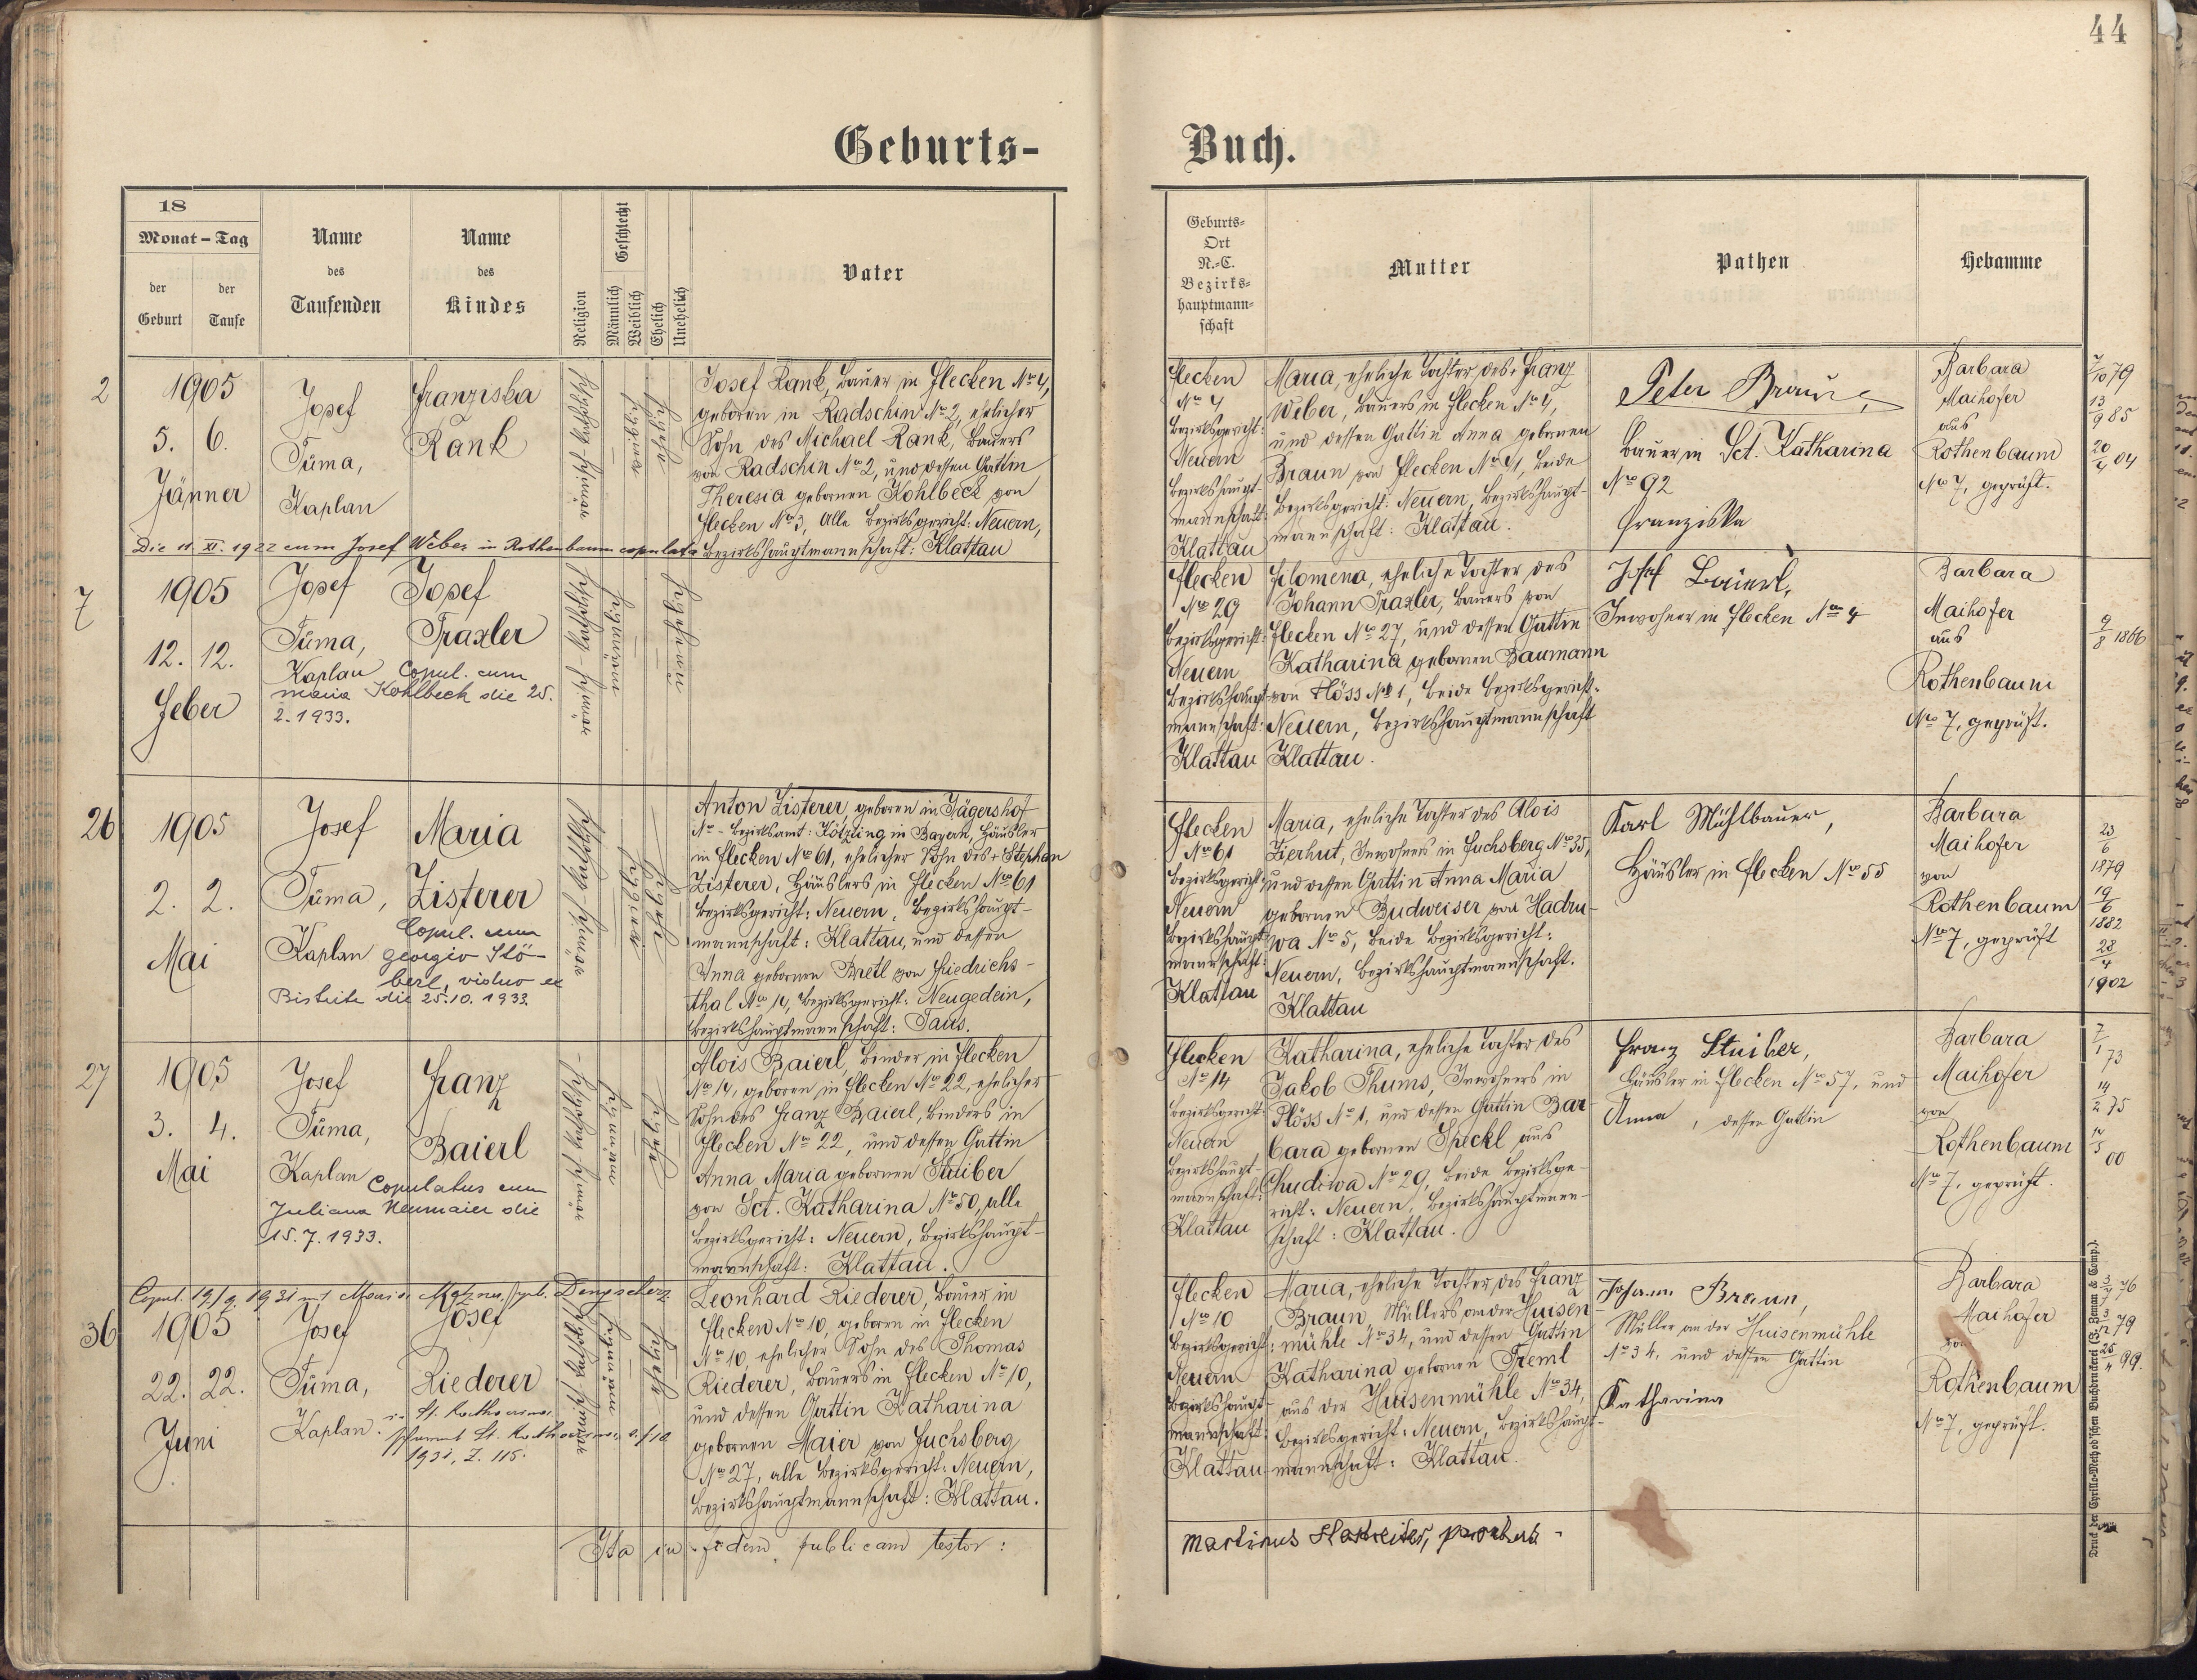 44
Geburts-
Buch.
18
Monat – Tag
der Geburt
der Taufe
Name des Taufenden
Name des Kindes
Religion
Geschlecht
Männlich
Weiblich
Ehelich
Unehelich
Vater
Geburts-
Ort
N.-C.
Bezirks-
hauptmann-
schaft
Mutter
Pathen
Hebamme
2
1905
5. 6.
Jänner
Josef
Tůma,
Kaplan
Franziska
Rank
Josef Rank, Bauer in Flecken No 4,
geboren in Radschin No 2, ehelicher
Sohn des Michael Rank, Bauers
von Radschin No 2, und dessen Gattin
Theresia gebornen Kohlbeck von
Flecken No 3, Alle Bezirksgericht: Neuern,
Bezirkshauptmannschaft: Klattau
Die 11. XI. 1922 cum Josef Weber in Rothenbaum copulata
Flecken
No 4
Bezirksgericht:
Neuern
Bezirkshaupt-
mannschaft:
Klattau
Maria, eheliche Tochter des Franz
Weber, Bauers in Flecken No 4,
und dessen Gattin Anna gebornen
Braun von Flecken No 41, beide
Bezirksgericht: Neuern, Bezirkshaupt-
mannschaft: Klattau.
Peter Braun,
Bauer in Sct. Katharina
No 92
Franziska
Barbara
Maihofer
aus
Rothenbaum
No 7, geprüft.
7/10 79
13/9 85
20/4 04
7
1905
12. 12.
Feber
Josef
Tůma,
Kaplan
Josef
Traxler
Copul. cum
maria Kohlbeck die 25.
2. 1933.
Flecken
No 29
Bezirksgericht:
Neuern
Bezirkshaupt-
mannschaft:
Klattau
Filomena, eheliche Tochter des
Johann Traxler, Bauers von
Flecken No 27, und dessen Gattin
Katharina gebornen Baumann
von Flöss No 1, beide Bezirksgericht:
Neuern, Bezirkshauptmannschaft
Klattau.
Josef Baierl,
Inwohner in Flecken No 4
Barbara
Maihofer
aus
Rothenbaum
No 7, geprüft.
9/8 1866
26
1905
2. 2.
Mai
Josef
Tůma,
Kaplan
Maria
Zisterer
Copul. cum
georgio Stö-
berl, viduo ex
Bistritz die 25.10. 1933.
Anton Zisterer, geboren in Jägershof
No - Bezirksamt: Kötzting in Bayern, Häusler
in Flecken No 61, ehelicher Sohn des + Stephan
Zisterer, Häuslers in Flecken No 61
Bezirksgericht: Neuern, Bezirkshaupt-
mannschaft: Klattau, und dessen
Anna gebornen Bretl von Friedrichs-
thal No 14, Bezirksgericht: Neugedein,
Bezirkshauptmannschaft: Taus.
Flecken
No 61
Bezirksgericht:
Neuern
Bezirkshaupt-
mannschaft:
Klattau
Maria, eheliche Tochter des Alois
Zierhut, Inwohners in Fuchsberg No 35,
und dessen Gattin Anna Maria
gebornen Budweiser von Hadru-
wa No 5, beide Bezirksgericht:
Neuern, Bezirkshauptmannschaft.
Klattau
Karl Mühlbauer,
Häusler in Flecken No 55
Barbara
Maihofer
von
Rothenbaum
No 7, geprüft
23/6
1879
19/6
1882
28/4
1902
27
1905
3. 4.
Mai
Josef
Tůma,
Kaplan
Franz
Baierl
Copulatus cum
Juliana Neumaier die
15. 7. 1933.
Alois Baierl, Binder in Flecken
No 14, geboren in Flecken No 22, ehelicher
Sohn des Franz Baierl, Binders in
Flecken No 22, und dessen Gattin
Anna Maria gebornen Stuiber
von Sct. Katharina No 50, alle
Bezirksgericht: Neuern, Bezirkshaupt-
mannschaft: Klattau.
Flecken
No 14
Bezirksgericht:
Neuern
Bezirkshaupt-
mannschaft:
Klattau
Katharina, eheliche Tochter des
Jakob Thums, Inwohners in
Flöss No 1, und dessen Gattin Bar-
bara gebornen Speckl aus
Chudiwa No 29, beide Bezirksge-
richt: Neuern, Bezirkshauptmann-
schaft: Klattau.
Franz Stuiber,
Häusler in Flecken No 57, und
Anna, dessen Gattin
Barbara
Maihofer
von
Rothenbaum
No 7, geprüft.
7/1 73
14/2 75
14/5 00
Copul. 19/9. 1931 mit Maria
36
1905
22. 22.
Juni
Josef
Tůma,
Kaplan.
Josef
Riederer
in St. Katharina.
1931, Z. 115.
Leonhard Riederer, Bauer in
Flecken No 10, geboren in Flecken
No 10, ehelicher Sohn des Thomas
Riederer, Bauers in Flecken No 10,
und dessen Gattin Katharina
gebornen Maier von Fuchsberg
No 27, alle Bezirksgericht: Neuern,
Bezirkshauptmannschaft: Klattau.
Flecken
No 10
Bezirksgericht:
Neuern
Bezirkshaupt-
mannschaft:
Klattau
Maria, eheliche Tochter des Franz
Braun, Müllers an der Huisen-
mühle No 34, und dessen Gattin
Katharina gebornen Treml
aus der Huisenmühle No 34,
Bezirksgericht: Neuern, Bezirkshaupt-
mannschaft: Klattau.
Johann Braun,
Müller an der Huisenmühle
No 34, und dessen Gattin
Katharina
Barbara
Maihofer
von
Rothenbaum
No 7, geprüft.
3/7 76
3/12 79
25/4 99.
Ita in fidem publicam testor:
Martinus
Druck der Cyrillo-Method'schen Buchdruckerei (G. Zeman & Comp.).